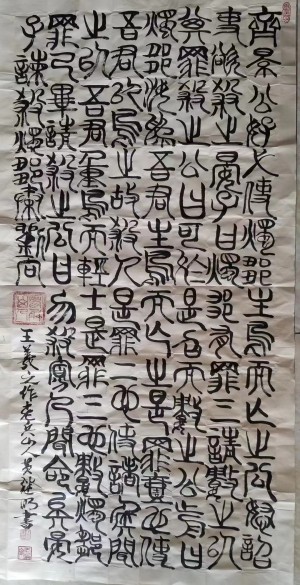 齊景公好弋使燭鄒主鳥而亡之公怒詔
吏欲殺之晏子曰燭鄒有罪三請數之以
其罪殺之公曰可於是召而數之公前曰
燭鄒汝爲吾君主鳥而亡之是罪壹也使
吾君以鳥之故殺人是罪二也使諸侯聞
之以吾君重鳥而輕士是罪三也數燭鄒
罪已畢請殺之公曰勿殺寡人聞命矣晏
子諫殺燭鄒漢劉向